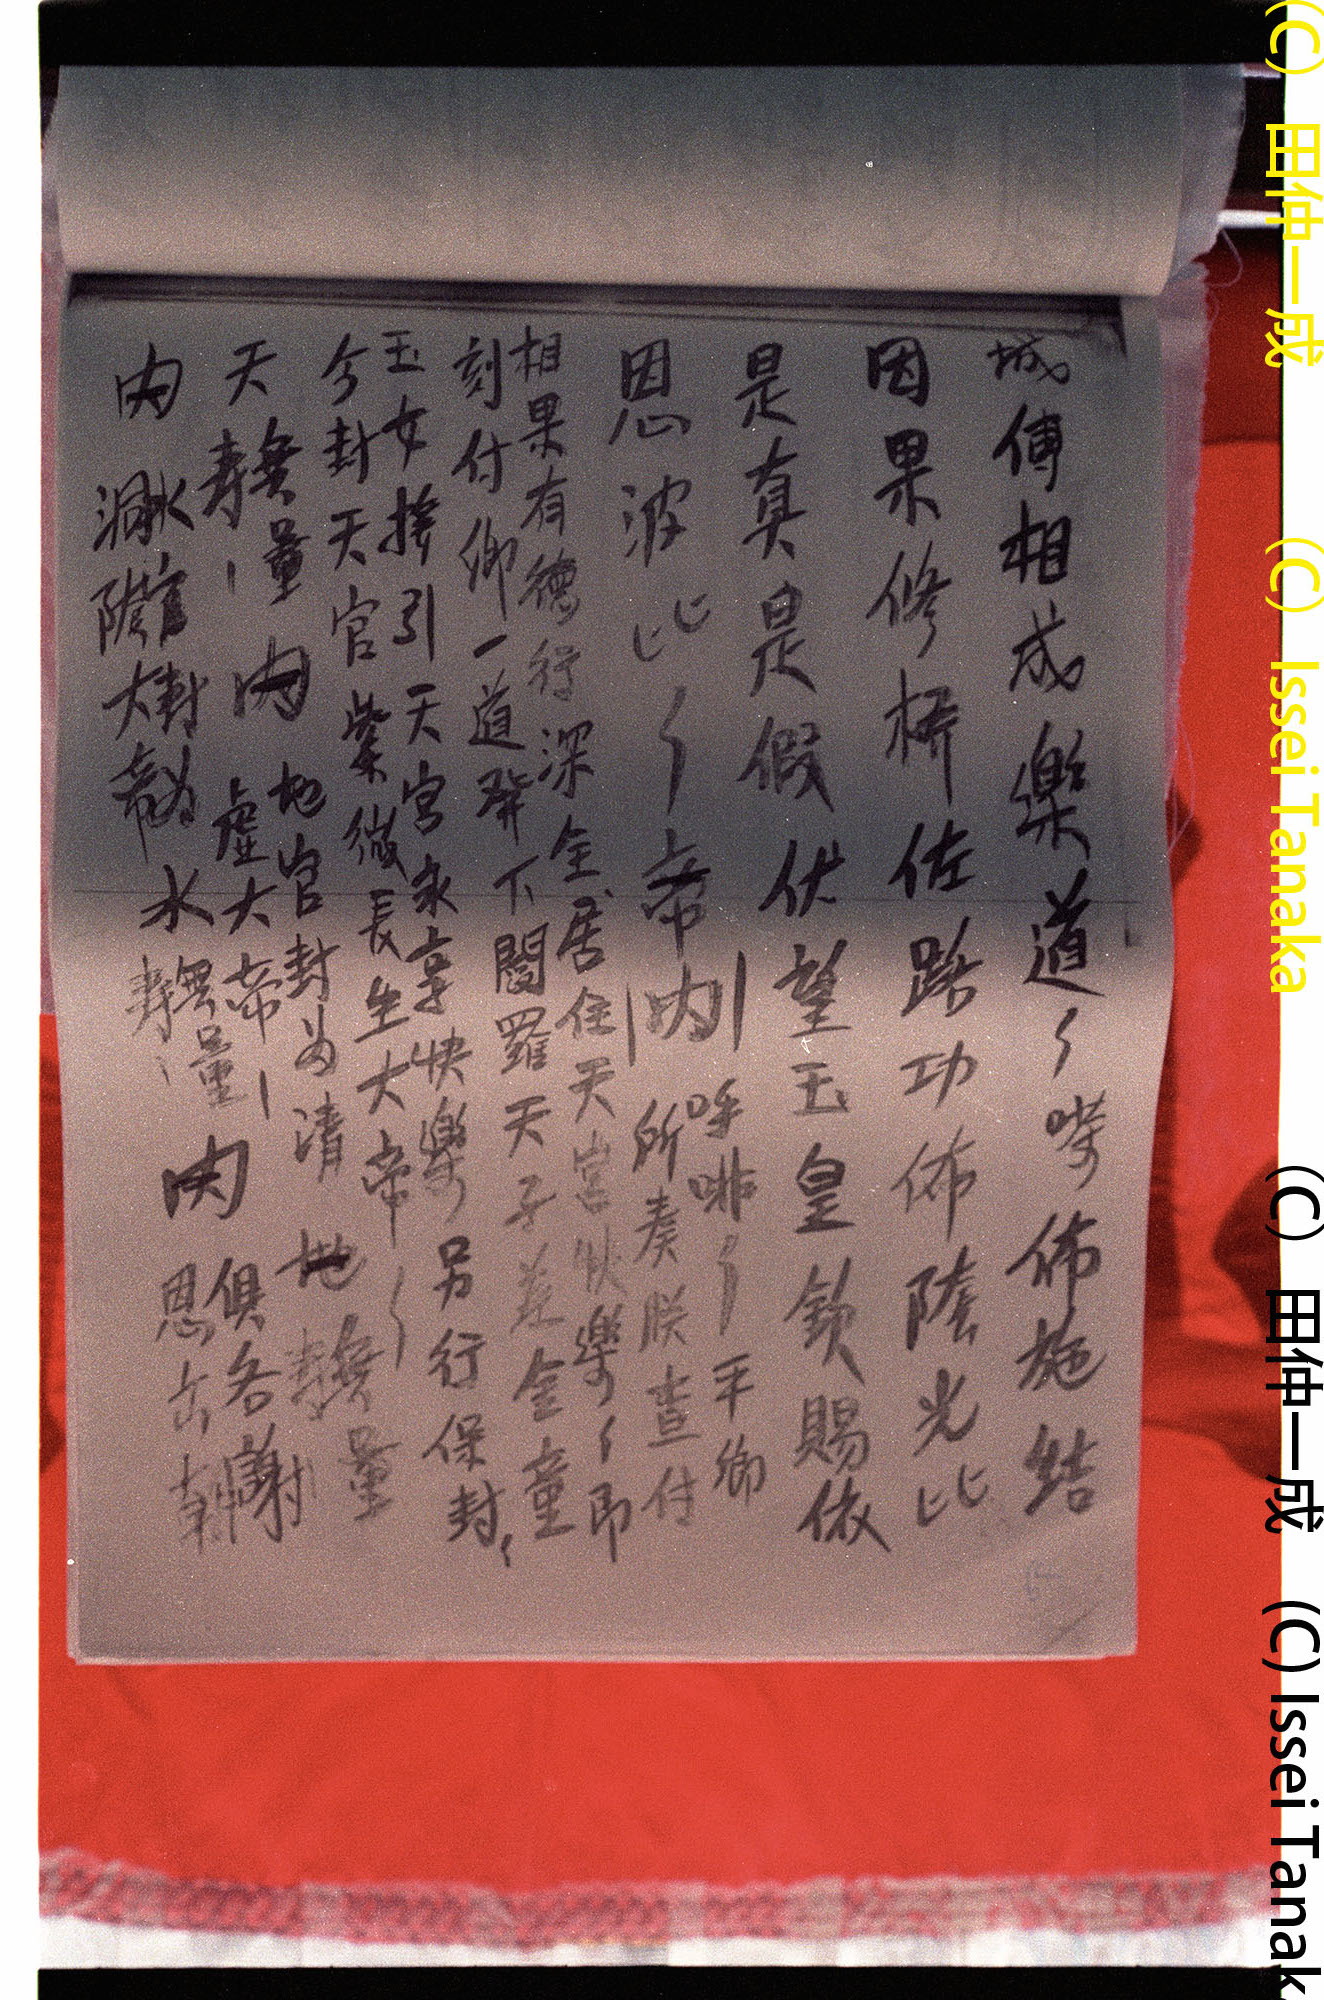 城傅相成樂道〻嗏佈施結
因果修桥佐路功佈陰光比
是真是假伏望玉皇欽賜依
恩波比〻帝内
呼啡〻平鄉
所奏朕查付
相果有德行深全居住天宫快樂〻即
刻付卿一道登下閻羅天子差金童
玉女接引天宫永享快樂另行保封
今封天官紫微長生大帝〻
天 無量壽 内 地官封为清
虚大帝 地 無量壽
内 水官大帝
水 無量壽 内 俱各謝
恩
(C) 田仲一成 (C) Issei Tanaka
(C) 田仲一成 (C) Issei Tanak